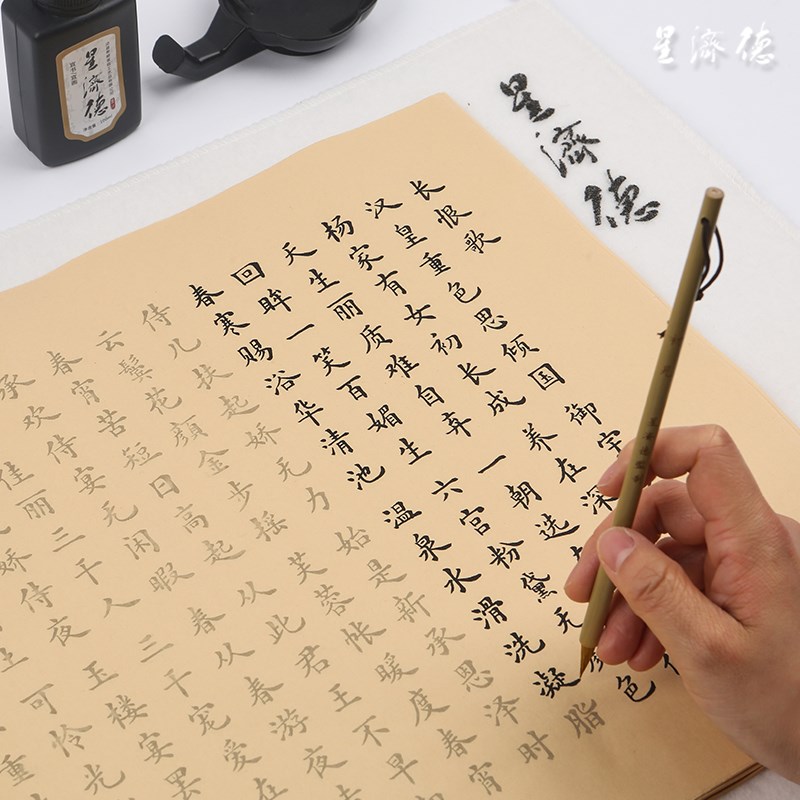 星濟德
星濟德
星濟德
长恨歌
汉皇重色思倾国 御宇
杨家有女初长成 养在深
天生丽质难自弃 一朝选
回眸一笑百媚生 六宫粉黛无颜色
春寒赐浴华清池 温泉水滑洗凝脂
侍儿扶起娇无力 始是新承恩泽时
云鬓花顔金步摇 芙蓉帐暖度春宵
春宵苦短日高起 从此君王不早
承欢侍宴无闲暇 春从春游夜
佳丽三千人 三千宠爱在
娇侍夜 玉楼宴罢
可怜光